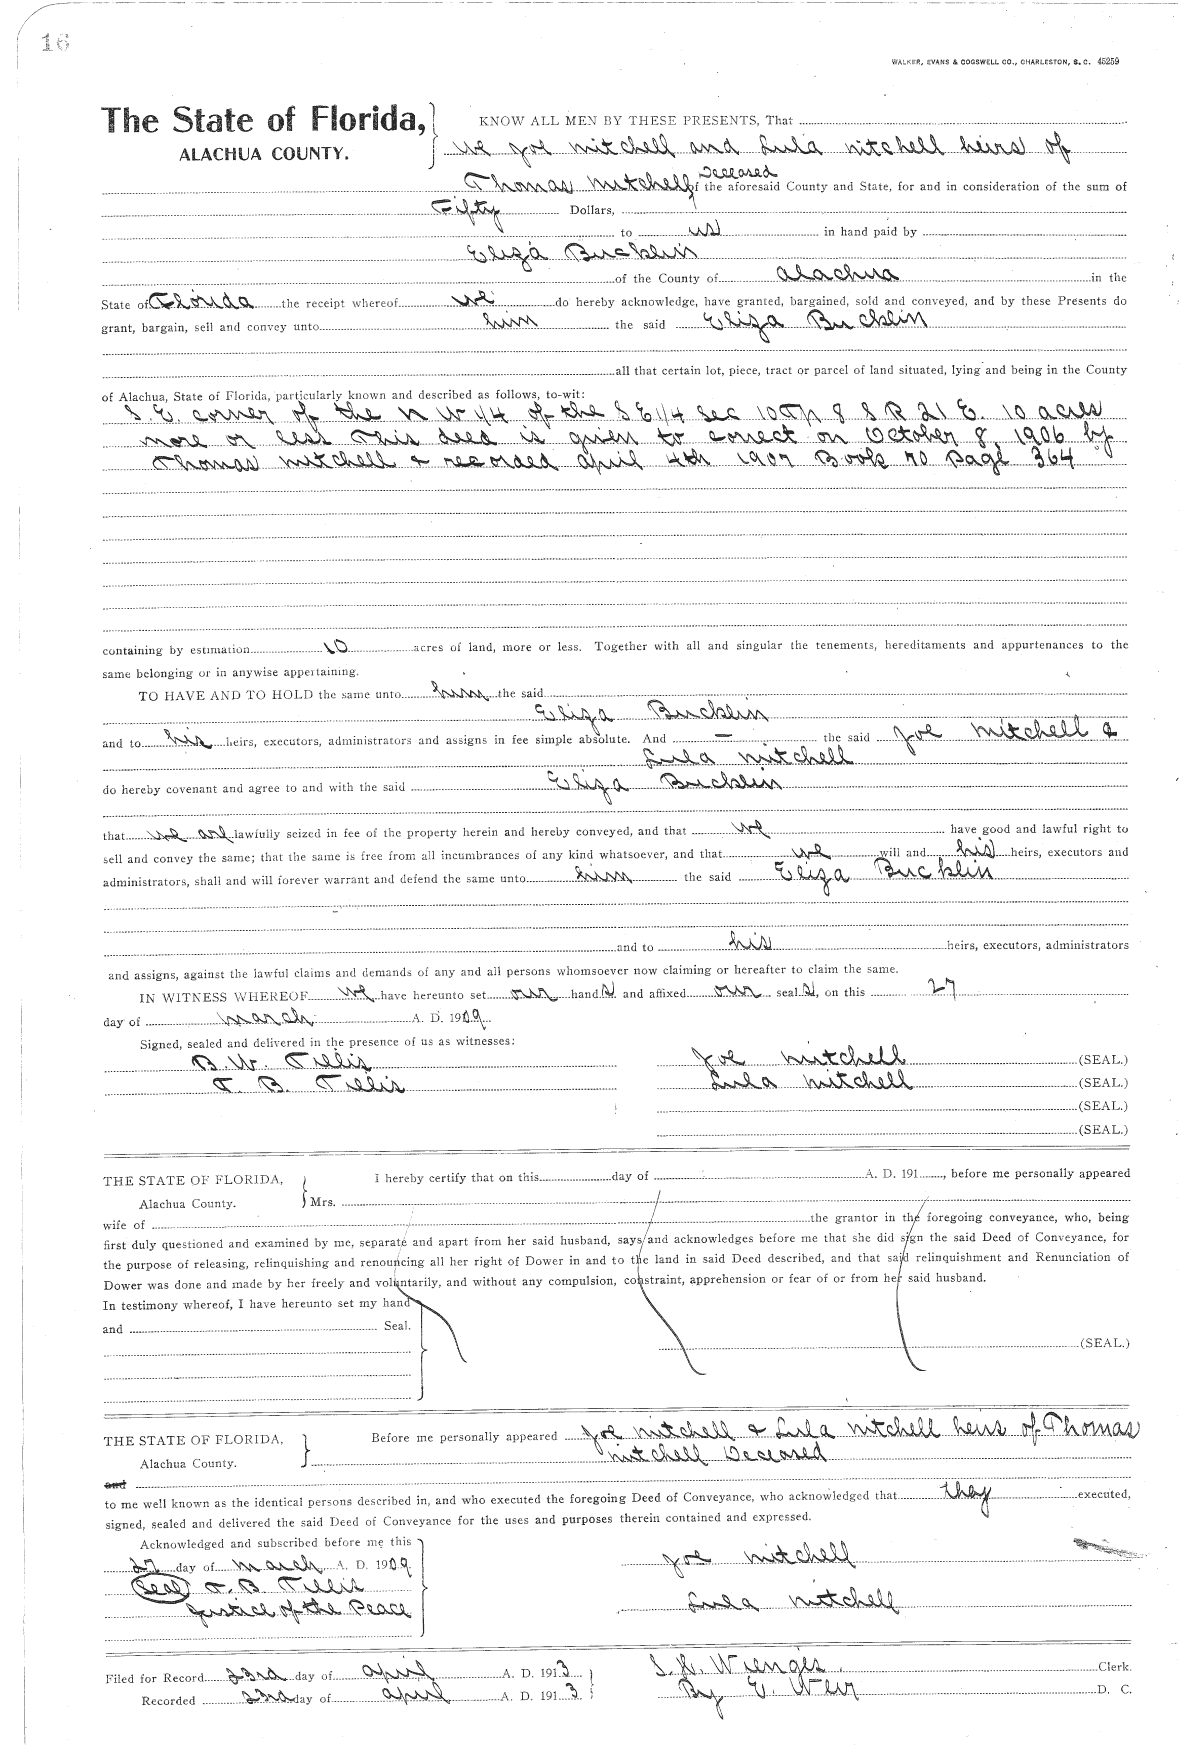 16
WALKER, EVANS & COGSWELL CO., CHARLESTON, S. C. 45259
The State of Florida, } KNOW ALL MEN BY THESE PRESENTS, That
ALACHUA COUNTY. we Joe Mitchell and Lula Mitchell heirs of
Deceased
Thomas Mitchell of the aforesaid County and State, for and in consideration of the sum of
Fifty Dollars,
to us in hand paid by
Eliza Bucklin
of the County of Alachua in the
State of Florida the receipt whereof we do hereby acknowledge, have granted, bargained, sold and conveyed, and by these Presents do
grant, bargain, sell and convey unto him the said Eliza Bucklin
all that certain lot, piece, tract or parcel of land situated, lying and being in the County
of Alachua, State of Florida, particularly known and described as follows, to-wit:
S. E. corner of the N W 1/4 of the S E 1/4 Sec 10 Tp 8 S R 21 E. 10 acres
more or less This deed is given to correct on October 8, 1906 by
Thomas Mitchell & recorded April 4th 1907 Book 70 Page 364
containing by estimation 10 acres of land, more or less. Together with all and singular the tenements, hereditaments and appurtenances to the
same belonging or in anywise appertaining.
TO HAVE AND TO HOLD the same unto him the said
Eliza Bucklin
and to his heirs, executors, administrators and assigns in fee simple absolute. And — the said Joe Mitchell &
Lula Mitchell
do hereby covenant and agree to and with the said Eliza Bucklin
that we are lawfully seized in fee of the property herein and hereby conveyed, and that we have good and lawful right to
sell and convey the same; that the same is free from all incumbrances of any kind whatsoever, and that we will and his heirs, executors and
administrators, shall and will forever warrant and defend the same unto him the said Eliza Bucklin
and to his heirs, executors, administrators
and assigns, against the lawful claims and demands of any and all persons whomsoever now claiming or hereafter to claim the same.
IN WITNESS WHEREOF we have hereunto set our hand s and affixed our seal s, on this 27
day of March A. D. 1909.
Signed, sealed and delivered in the presence of us as witnesses:
B. W. Tillis Joe Mitchell (SEAL.)
T. B. Tillis Lula Mitchell (SEAL.)
(SEAL.)
(SEAL.)
THE STATE OF FLORIDA, } I hereby certify that on this day of A. D. 191 , before me personally appeared
Alachua County. Mrs.
wife of the grantor in the foregoing conveyance, who, being
first duly questioned and examined by me, separate and apart from her said husband, says and acknowledges before me that she did sign the said Deed of Conveyance, for
the purpose of releasing, relinquishing and renouncing all her right of Dower in and to the land in said Deed described, and that said relinquishment and Renunciation of
Dower was done and made by her freely and voluntarily, and without any compulsion, constraint, apprehension or fear of or from her said husband.
In testimony whereof, I have hereunto set my hand
and Seal.
(SEAL.)
THE STATE OF FLORIDA, } Before me personally appeared Joe Mitchell & Lula Mitchell heirs of Thomas
Alachua County. Mitchell Deceased
and
to me well known as the identical persons described in, and who executed the foregoing Deed of Conveyance, who acknowledged that they executed,
signed, sealed and delivered the said Deed of Conveyance for the uses and purposes therein contained and expressed.
Acknowledged and subscribed before me this
27 day of March A. D. 1909 Joe Mitchell
Seal T. B. Tillis
Justice of the Peace Lula Mitchell
Filed for Record 23rd day of April A. D. 1913 S. H. Wienges Clerk.
Recorded 23rd day of April A. D. 1913 By E. Weir D. C.